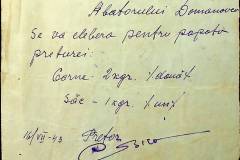 Abatorului Domanovca
Se va elibera pentru popota
preturei:
Carne - 2 kgr. / două /
Săc - 1 kgr. / un /
16/VII-43 Pretor,